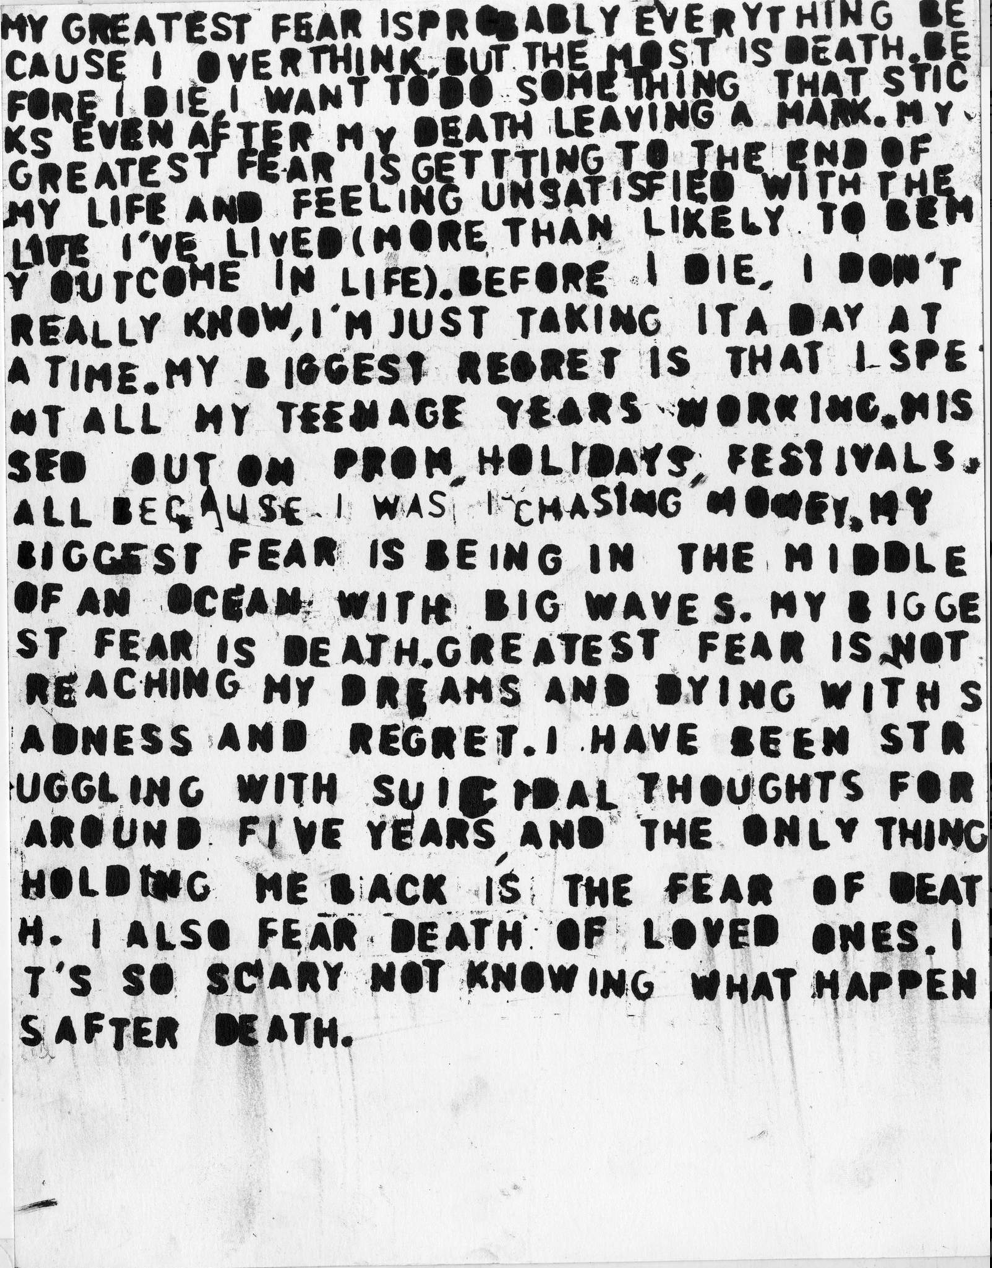 MY GREATEST FEAR ISPROBABLY EVERYTHING BE
CAUSE I OVERTHINK, BUT THE MOST IS DEATH.BE
FORE I DIE, I WANT TODO SOMETHING THAT STIC
KS EVEN AFTER MY DEATH LEAVING A MARK. MY
GREATEST FEAR IS GETTTING TO THE END OF
MY LIFE AND FEELING UNSATISFIED WITH THE
LIFE I'VE LIVED (MORE THAN LIKELY TO BE M
Y OUTCOME IN LIFE). BEFORE I DIE, I DON'T
REALLY KNOW, I'M JUST TAKING IT A DAY AT
A TIME. MY BIGGEST REGRET IS THAT I SPE
NT ALL MY TEENAGE YEARS WORKING. MIS
SED OUT ON PROM, HOLIDAYS, FESTIVALS.
ALL BECAUSE I WAS CHASING MONEY. MY
BIGGEST FEAR IS BEING IN THE MIDDLE
OF AN OCEAN WITH BIG WAVES. MY BIGGE
ST FEAR IS DEATH. GREATEST FEAR IS NOT
REACHING MY DREAMS AND DYING WITH S
ADNESS AND REGRET. I HAVE BEEN STR
UGGLING WITH SUICIDAL THOUGHTS FOR
AROUND FIVE YEARS, AND THE ONLY THING
HOLDING ME BACK IS THE FEAR OF DEAT
H. I ALSO FEAR DEATH OF LOVED ONES. I
T'S SO SCARY NOT KNOWING WHAT HAPPEN
S AFTER DEATH.